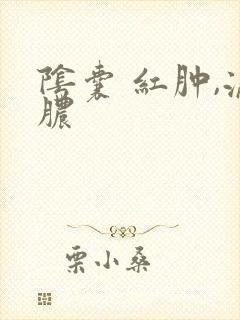 陰囊 紅肿,流
膿
栗小桑